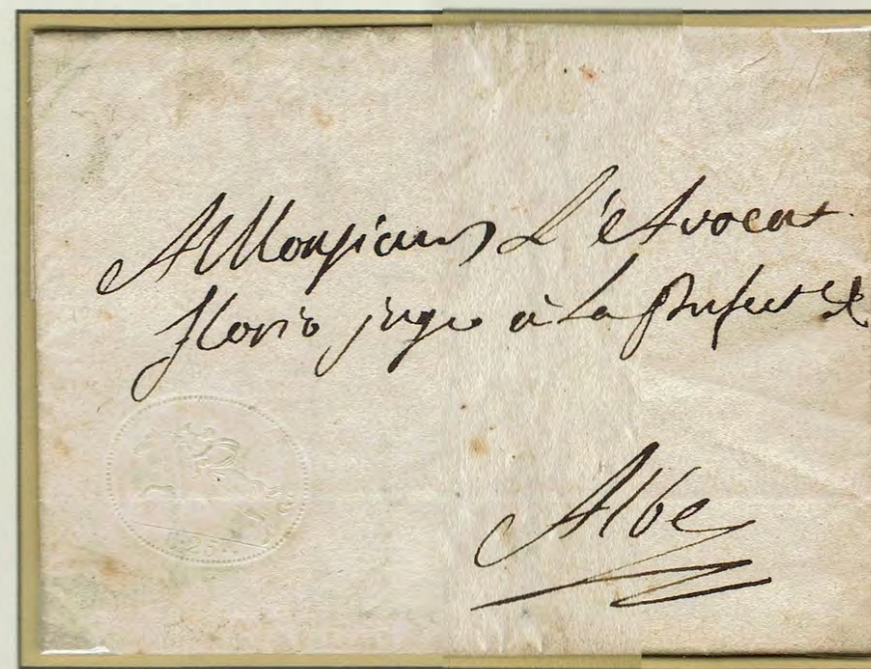 A Monsieur L'Avocat
Florio juge à La Prefect.re
Albe
25